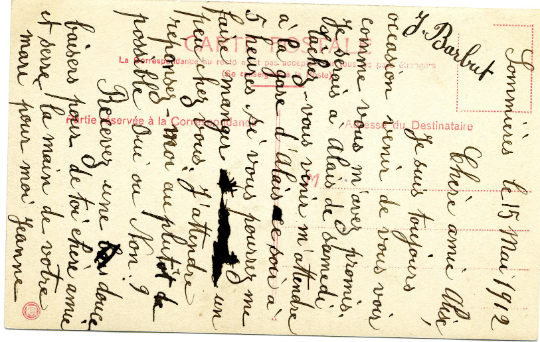 Sommières le 15 Mai 1912
Chère amie Alise,
Je suis toujours
occasion venir de vous voir
comme vous m'avez promis.
Je serais à Alais de samedi,
tacher vous venir m'attendre
à la gare d'Alais ce soir à
5 heures, si vous pourrez me
fair manger un
peu chez vous. J'attendre
reponsez-moi au plutôt de
possible Oui ou Non. ?
Recevez une douce
baisers pour de toi chère amie
et serre la main de votre
mari pour moi Jeanne
J. Barbut
CARTE POSTALE
La Correspondance au recto n'est pas acceptée par tous les pays étrangers
(Se renseigner à la Poste)
Partie réservée à la Correspondance
Adresse du Destinataire
M